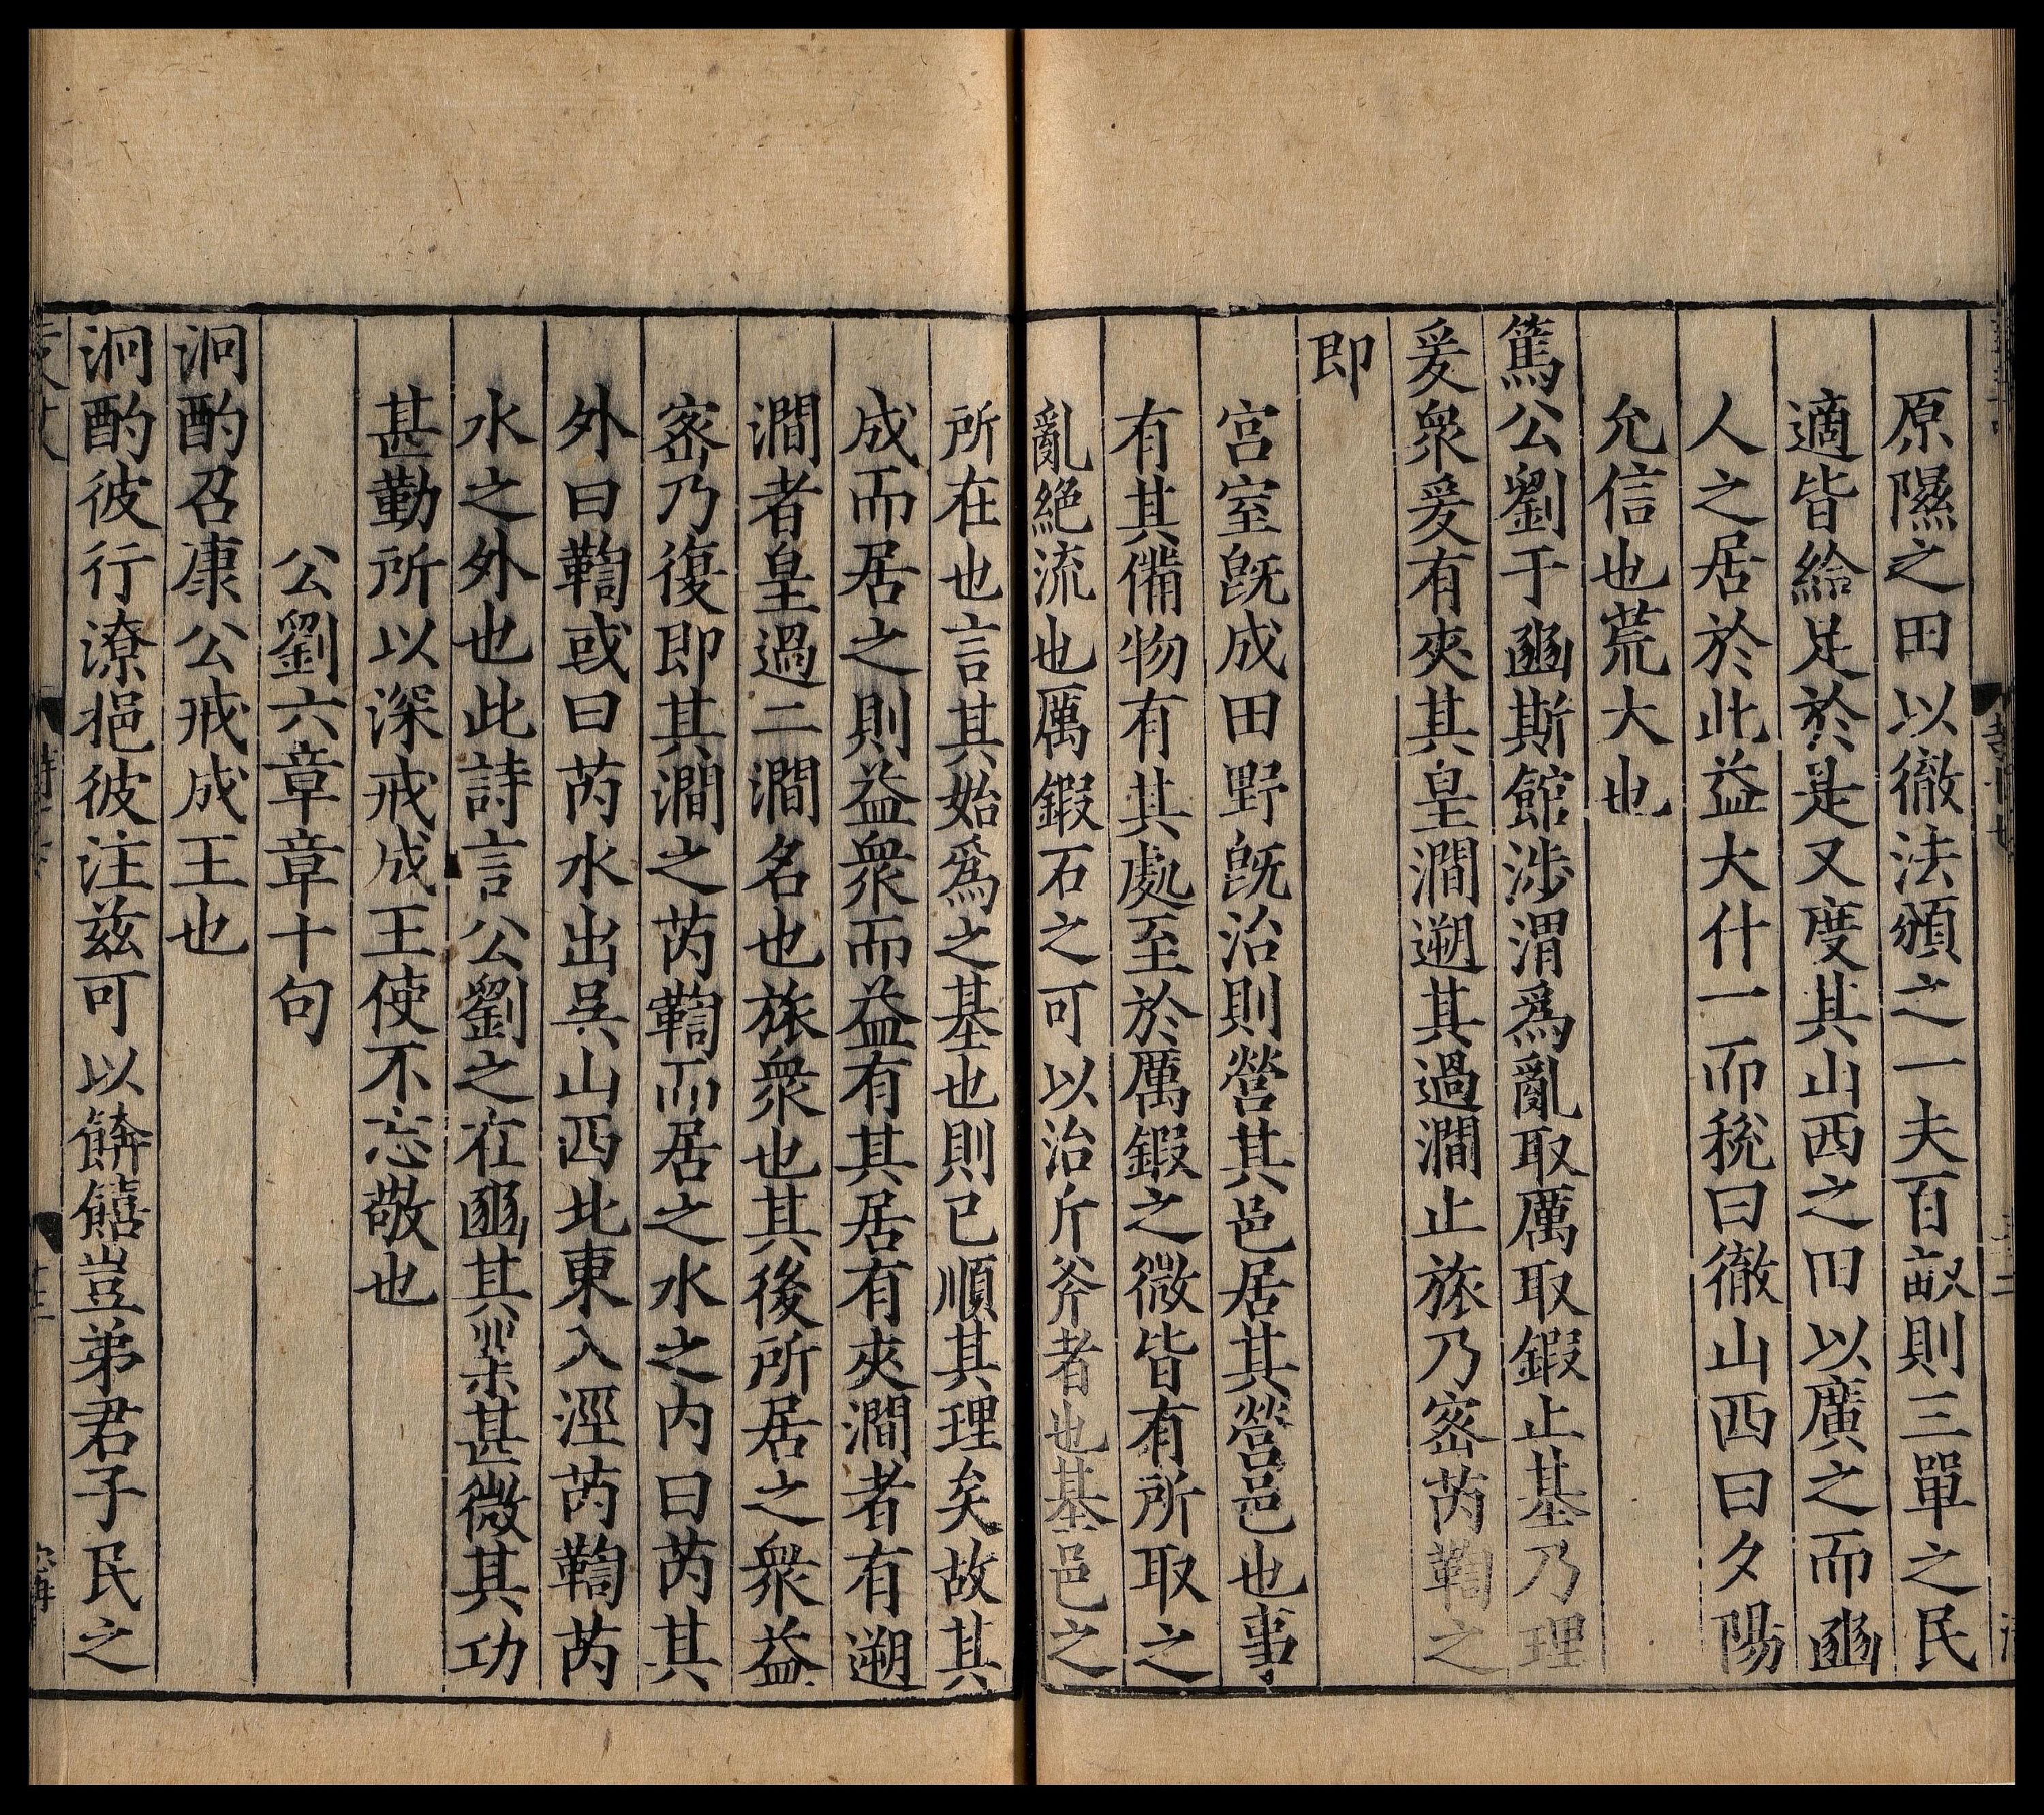 原隰之田以徹法頒之一夫百畝則三單之民
適皆給足於是又度其山西之田以廣之而豳
人之居於此益大什一而稅曰徹山西曰夕陽
允信也荒大也
篤公劉于豳斯館涉渭爲亂取厲取鍜止基乃理
爰衆爰有夾其皇澗遡其過澗止旅乃宻芮鞫之
即
宫室旣成田野旣治則營其邑居其營邑也事
有其備物有其處至於厲鍜之微皆有所取之
亂絶流也厲鍜石之可以治斤斧者也基邑之
所在也言其始爲之基也則已順其理矣故其
成而居之則益衆而益有其居有夾澗者有遡
澗者皇過二澗名也旅衆也其後所居之衆益
宻乃復即其澗之芮鞫而居之水之内曰芮其
外曰鞫或曰芮水出吳山西北東入涇芮鞫芮
水之外也此詩言公劉之在豳其業甚微其功
甚勤所以深戒成王使不忘敬也
公劉六章章十句
泂酌召康公戒成王也
泂酌彼行潦挹彼注兹可以餴饎豈弟君子民之